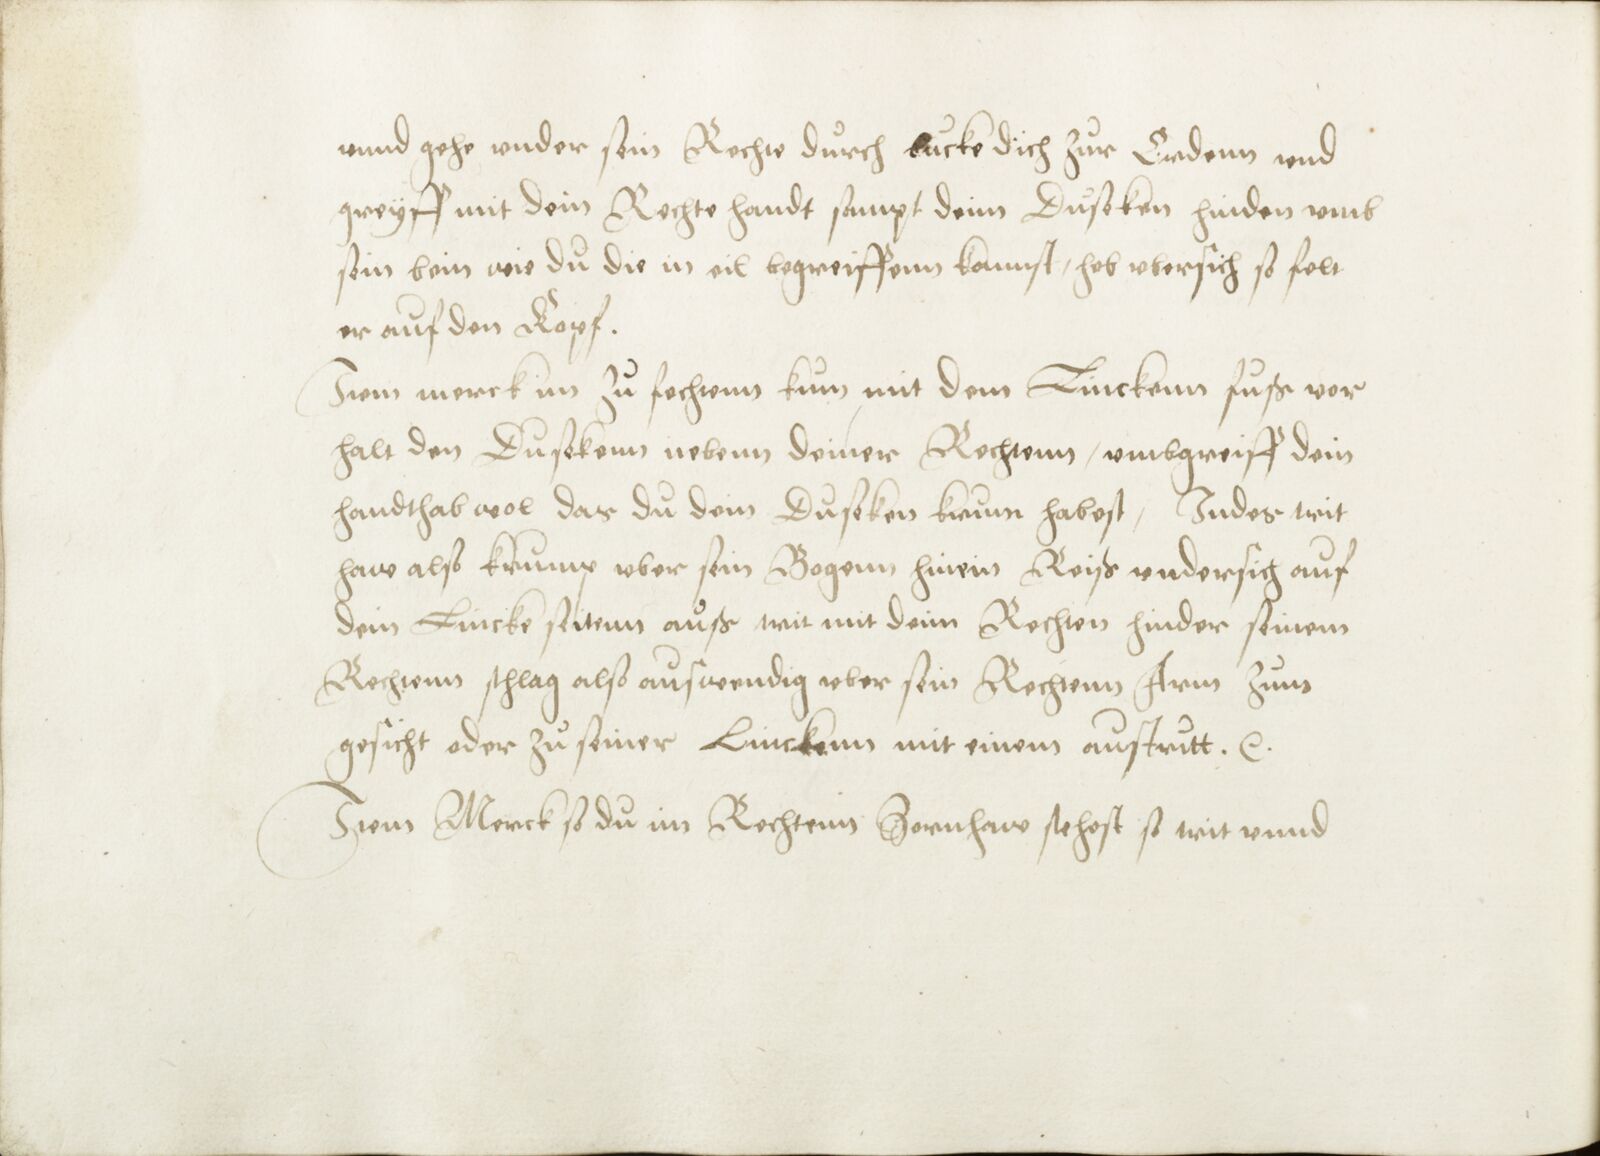 vnnd gehe vnder sein Rechte durch bucke dich zur Erdenn vnd
greÿff mit dein Rechte handt sampt deim Duseken hinden vmb
sein bein wie du die in eil begreiffenn kannst / heb vbersich so felt
er auf den Kopf.
Item merck im zu fechtenn kum mit dem Linckenn fuß vor
halt den Dusekenn nebenn deiner Rechtenn / vmbgreiff dein
handthab wol das du dein Duseken krum habest / Indes trit
haw also krump vber sein Bogenn hinein Reiß vndersich auf
dein Lincke seitenn auß trit mit deim Rechten hinder seinem
Rechtenn schlag also auswendig vber sein Rechtenn Arm zum
gesicht oder zu seiner Linckenn mit einem austritt. &.
Item Merck so du im Rechtenn Zornhaw stehest so trit vnnd